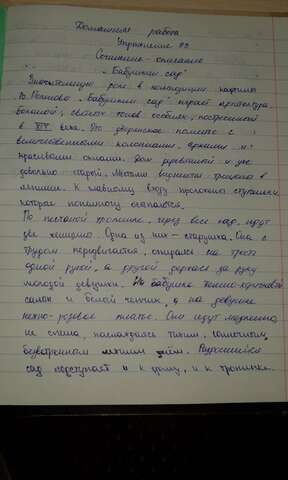 Домашняя работа
Упражнение 83
Сочинение - описание
"Бабушкин сад"
Значительную роль в композиции картины
В. Поленова "Бабушкин сад" играет архитектура
большой, своего типа особняк, построенный
в XIX веке. Это дворянское поместье с
великолепными колоннами, арками и
красивыми окнами. Дом деревянный и уже
довольно старый. Местами виднеются трещины в
лепнине. К главному входу проложены ступеньки,
которые понемногу осыпаются.
По песчаной тропинке, через весь сад, идут
две женщины. Одна из них - старушка. Она с
трудом передвигается, опираясь на трость
одной рукой, а другой держась за руку
молодой девушки. На бабушке темно-коричневый
салоп и белой чепчик, а на девушке
нежно-розовое платье. Они идут медленно,
не спеша, наслаждаясь тихим, солнечным,
безветренным летним днём. Разросшийся
сад подступает и к дому, и к тропинке.